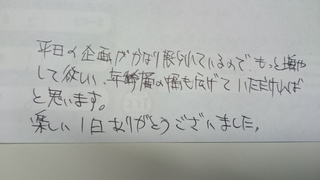 平日の企画がかなり限られているので もっと増や
して欲しい、年齢層の幅も広げていただければ
と思います。
楽しい1日ありがとうございました。